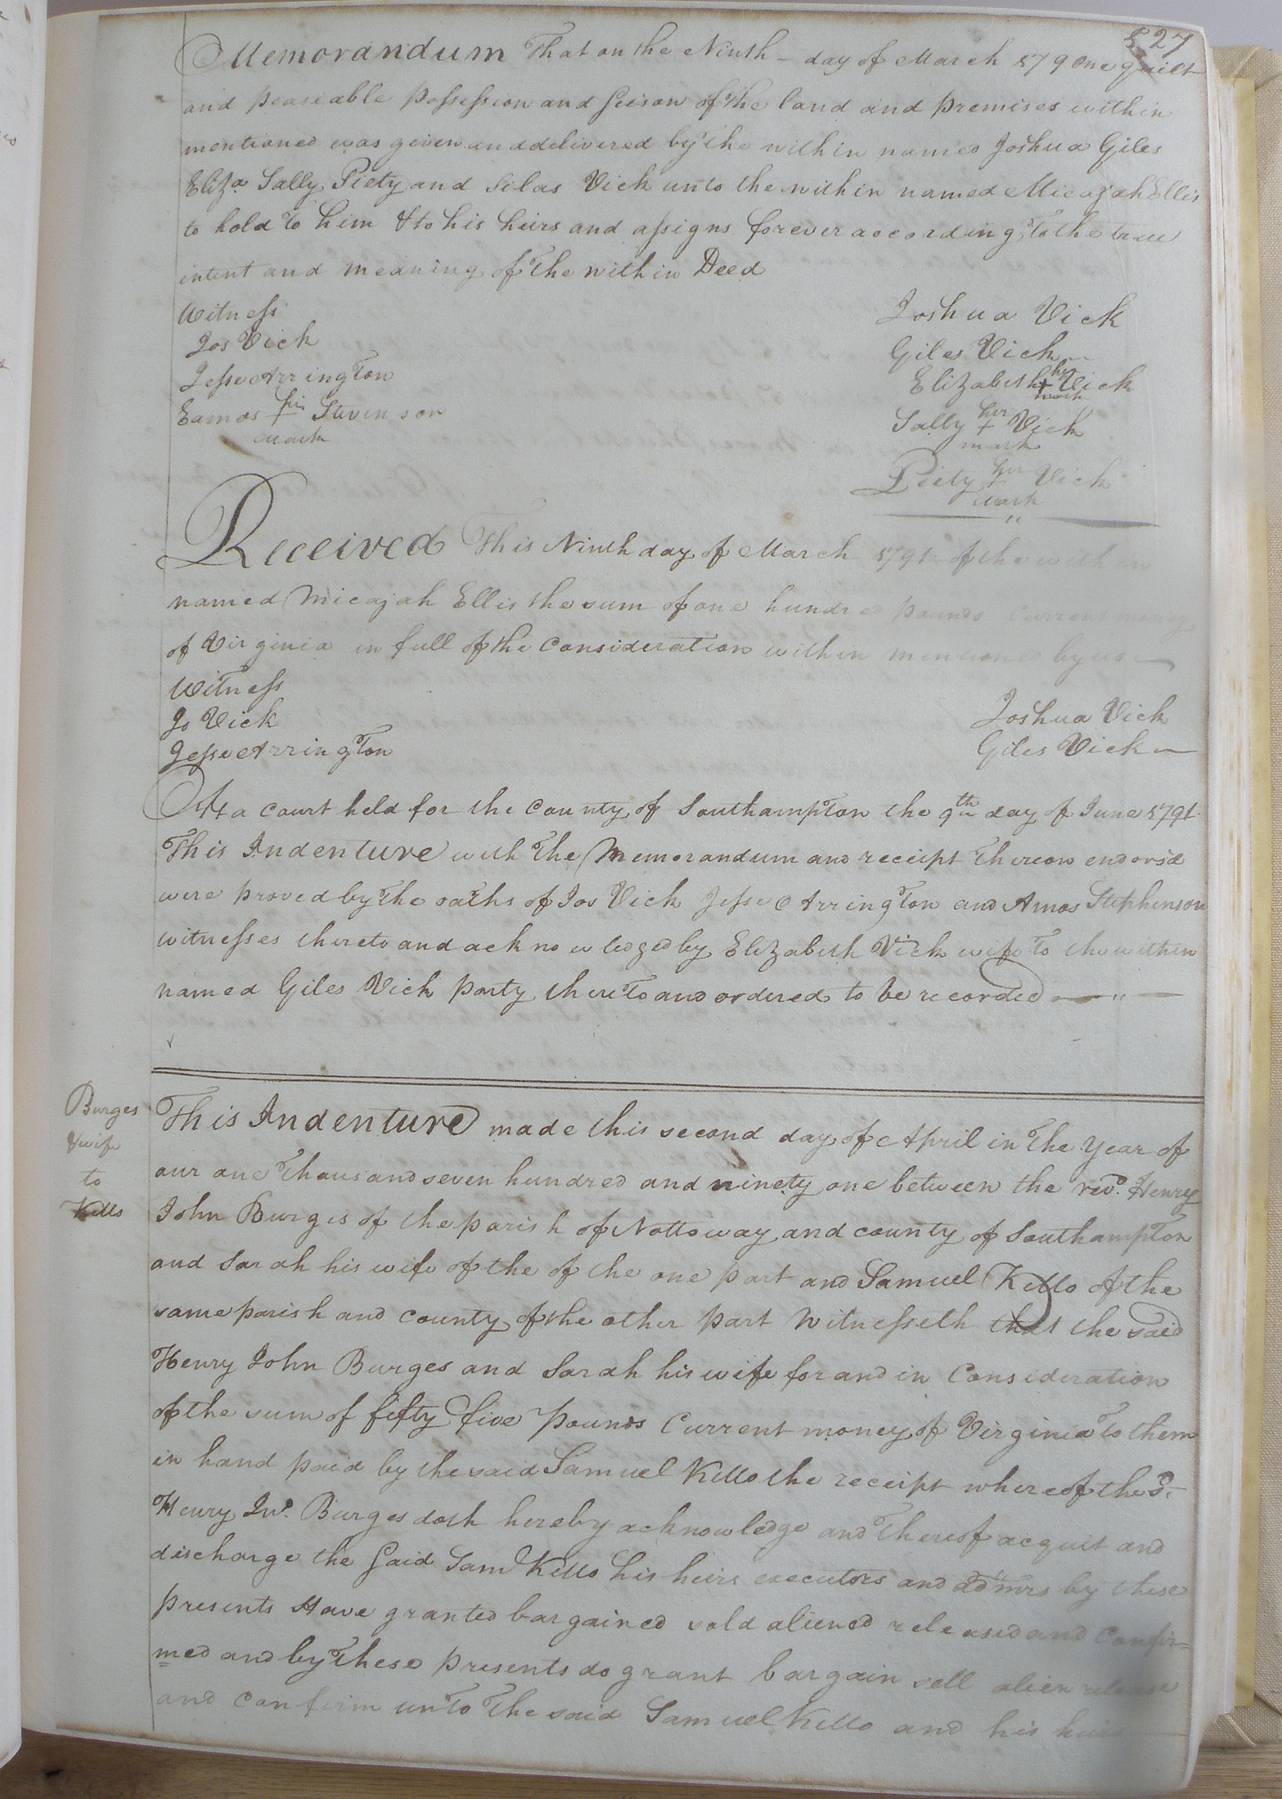 527
Memorandum That on the Ninth – day of March 179 One quiet
and peaseable possession and seison of the land and premises within
mentioned was given and delivered by the within named Joshua Giles
Eliza Sally Piety and Silas Vick unto the within named Micajah Ellis
to hold to him & to his heirs and assigns forever according To the true
intent and meaning of the within Deed
Witness
Jos Vick
Jesse Arrington
Eamos his + Stevinson
mark
Joshua Vick
Giles Vick
Elizabeth her + Vick
mark
Sally her + Vick
mark
Piety her + Vick
mark
Received This Ninth day of March 1791 of the within
named Micajah Ellis the sum of one hundred pounds current money
of Virginia in full of the Consideration within mentioned by us
Witness
Jo Vick
Jesse Arrington
Joshua Vick
Giles Vick
At a Court held for the County of Southampton the 9th day of June 1791
This Indenture with The Memorandum and receipt Thereon endorsd
were proved by The oaths of Jos Vick Jesse Arrington and Amos Stephenson
witnesses thereto and acknowledged by Elizabeth Vick wife To the within
named Giles Vick party thereto and ordered to be recorded
Burges
& wife
to
Kello
This Indenture made this second day of April in The Year of
our one Thousand seven hundred and ninety one between the revd. Henry
John Burges of the parish of Nottoway and county of Southampton
and Sarah his wife of the of the one part and Samuel Kello of the
same parish and county of the other part Witnesseth that the said
Henry John Burges and Sarah his wife for and in Consideration
of the sum of fifty five pounds Current money of Virginia To them
in hand paid by the said Samuel Kello the receipt whereof the sd.
Henry Jno. Burges doth hereby acknowledge and Thereof acquit and
discharge the Said Saml Kello his heirs executors and admrs by these
presents Have granted bargained sold aliened released and Confir=
=med and by These presents do grant bargain sell alien release
and confirm unto The said Samuel Kello and his heirs